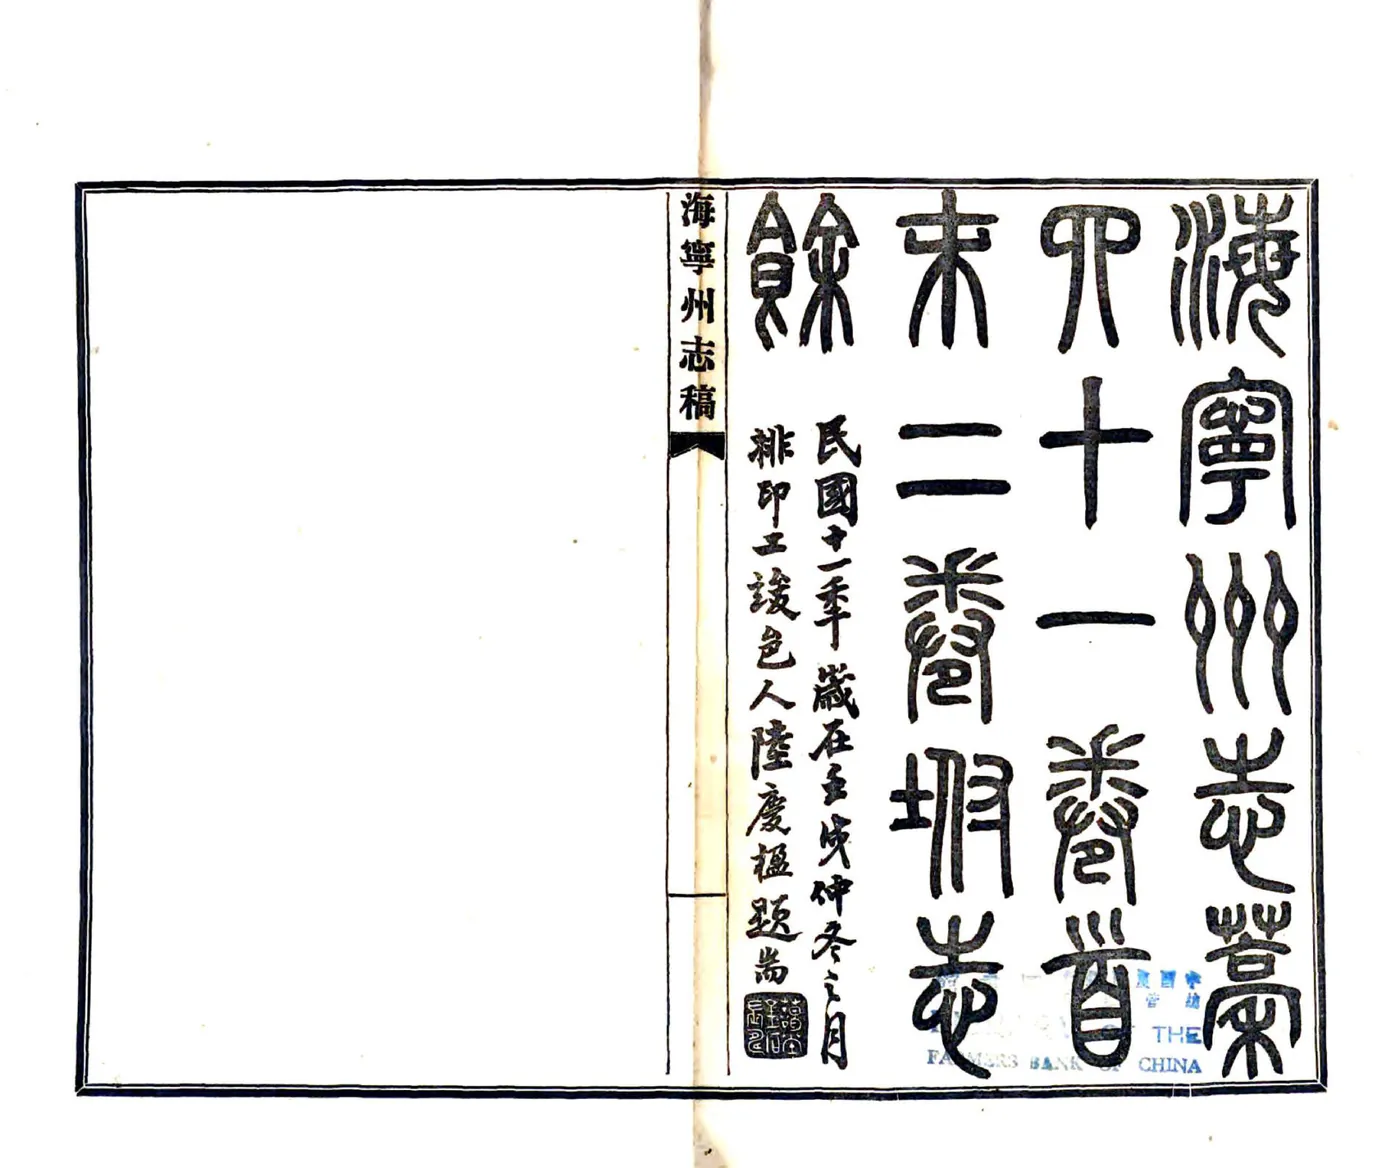 海寧州志藁
四十一卷首
末二卷坿志
餘
民國十一年歲在壬戌仲冬之月
排印工竣邑人陸慶楹題耑
海寧州志稿
THE
FARMERS BANK OF CHINA